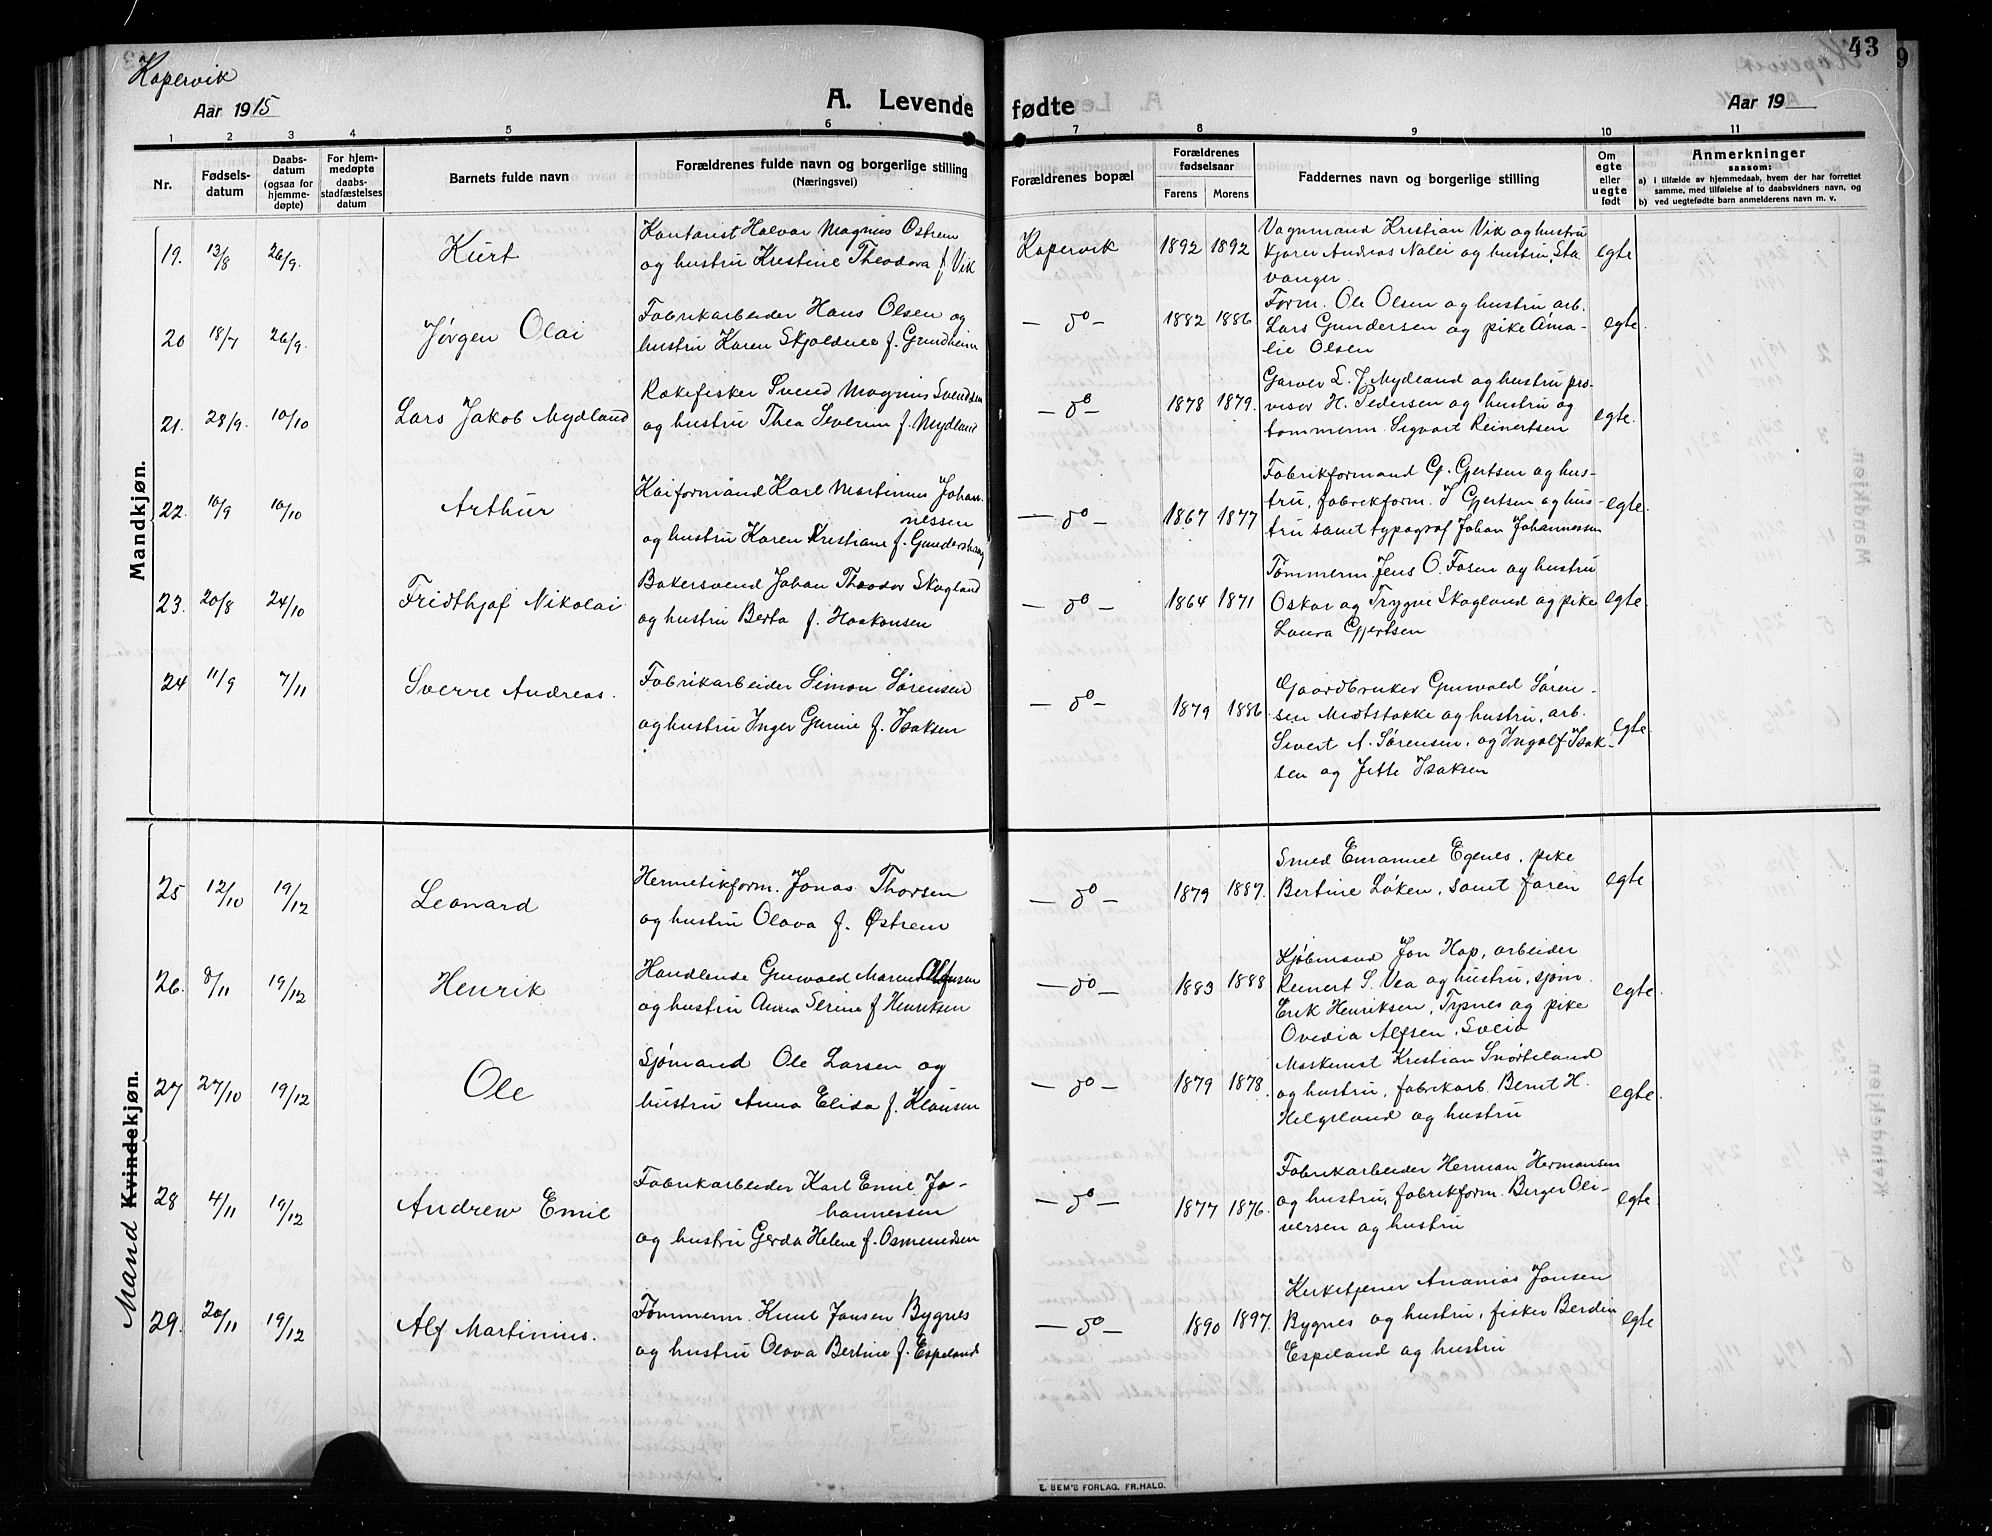 Kopervik
43
9
Aar 1915
A. Levende fødte
Aar 19
1 2 3 4 5 6 7 8 9 10 11
Nr.
Fødselsdatum
Daabsdatum (ogsaa for hjemmedøpte)
For hjemmedøpte daabsstadfæstelses datum
Barnets fulde navn
Forældrenes fulde navn og borgerlige stilling
(Næringsvei)
Forældrenes bopæl
Forældrenes fødselsaar
Farens Morens
Faddernes navn og borgerlige stilling
Om egte eller uegte født
Anmerkninger
saasom:
a) i tilfælde av hjemmedaab, hvem der har forrettet samme, med tilføielse af to daabsvidners navn, og
b) ved uegtefødte barn anmelderens navn m. v.
Mandkjøn.
19. 13/8 26/9. Kurt
Kontorist Halvar Magnus Østrem
og hustru Kristine Theodora f. Vik
Kopervik 1892 1892
Vognmand Kristian Vik og hustru
Andreas Nalei og hustru, Sta-
vanger
egte
20 18/7 26/9. Jørgen Olai
Fabrikarbeider Hans Olsen og
hustru Karen Skjoldnes f. Grindheim
— do — 1882 1886
Form. Ole Olsen og hustru, arb.
Lars Gundersen og pike Ama-
lie Olsen
egte
21. 28/9. 10/10 Lars Jakob Mydland
Rækefisker Svend Magnus Svendsen
og hustru Thea Severin f. Mydland
— do — 1878 1879.
Garver L. J. Mydland og hustru pro-
visor H. Pedersen og hustru og
tømmerm. Sigvart Reinertsen
egte.
22. 10/9 10/10 Arthur
Kaiformand Karl Martinus Johan-
nessen
og hustru Karen Kristiane f. Gundershaug
— do — 1867 1877
Fabrikformand G. Gjertsen og hus-
tru, fabrikform. J Gjertsen og hus-
tru samt typograf Johan Johannessen
egte.
23. 20/8 24/10 Fridthjof Nikolai
Bakersvend Johan Theodor Skogland
og hustru Berta f. Haakonsen
— do — 1864 1871
Tømmerm Jens O. Fosen og hustru
Oskar og Trygve Skogland og pike
Laura Gjertsen
egte.
24 11/9 7/11 Sverre Andreas.
Fabrikarbeider Simon Sørensen
og hustru Inger Gurine f. Isaksen
— do — 1879 1886.
Gaardbruker Grunvald Søren-
sen Medtstokke og hustru, arb.
Sivert A. Sørensen, og Ingolf Isak-
sen og Jette Isaksen
egte.
Mand Kvindekjøn.
25 12/10 19/12 Leonard
Hermetikform. Jonas Thorsen
og hustru Olava f. Østrem
— do — 1879 1887.
Smed Emanuel Egenes, pike
Bertine Løken, samt faren
egte
26. 8/11 19/12 Henrik
Handlende Grunvald Marend Alfsen
og hustru Anna Serine f Henriksen
— do — 1883 1888
Kjøbmand Jon Hop, arbeider
Reinert S. Vea og hustru, sjøm.
Erik Henriksen, Trynes og pike
Ovedia Alfsen,
egte.
27 27/10 19/12 Ole
Sjømand Ole Larsen og
hustru Anna Elida f. Klausen
— do — 1879 1878.
Maskinist Kristian Snørteland
og hustru, fabrikarb. Bernt H.
Helgeland og hustru
egte.
28 4/11 19/12 Andrew Emil
Fabrikarbeider Karl Emil Jo-
hannessen
og hustru Gerda Helene f. Osmundsen
— do — 1877 1876.
Fabrikarbeider Herman Hermansen
og hustru, fabrikform. Berger Oli-
versen og hustru
egte.
29. 20/11 19/12 Alf Martinius.
Tømmerm. Knut Jansen Bygnes
og hustru Olava Bertine f. Espeland
— do — 1890 1897.
Kirketjener Ananias Jansen
Bygnes og hustru, fisker Berdin
Espeland og hustru
egte
E. SEM'S FORLAG, FR.HALD.